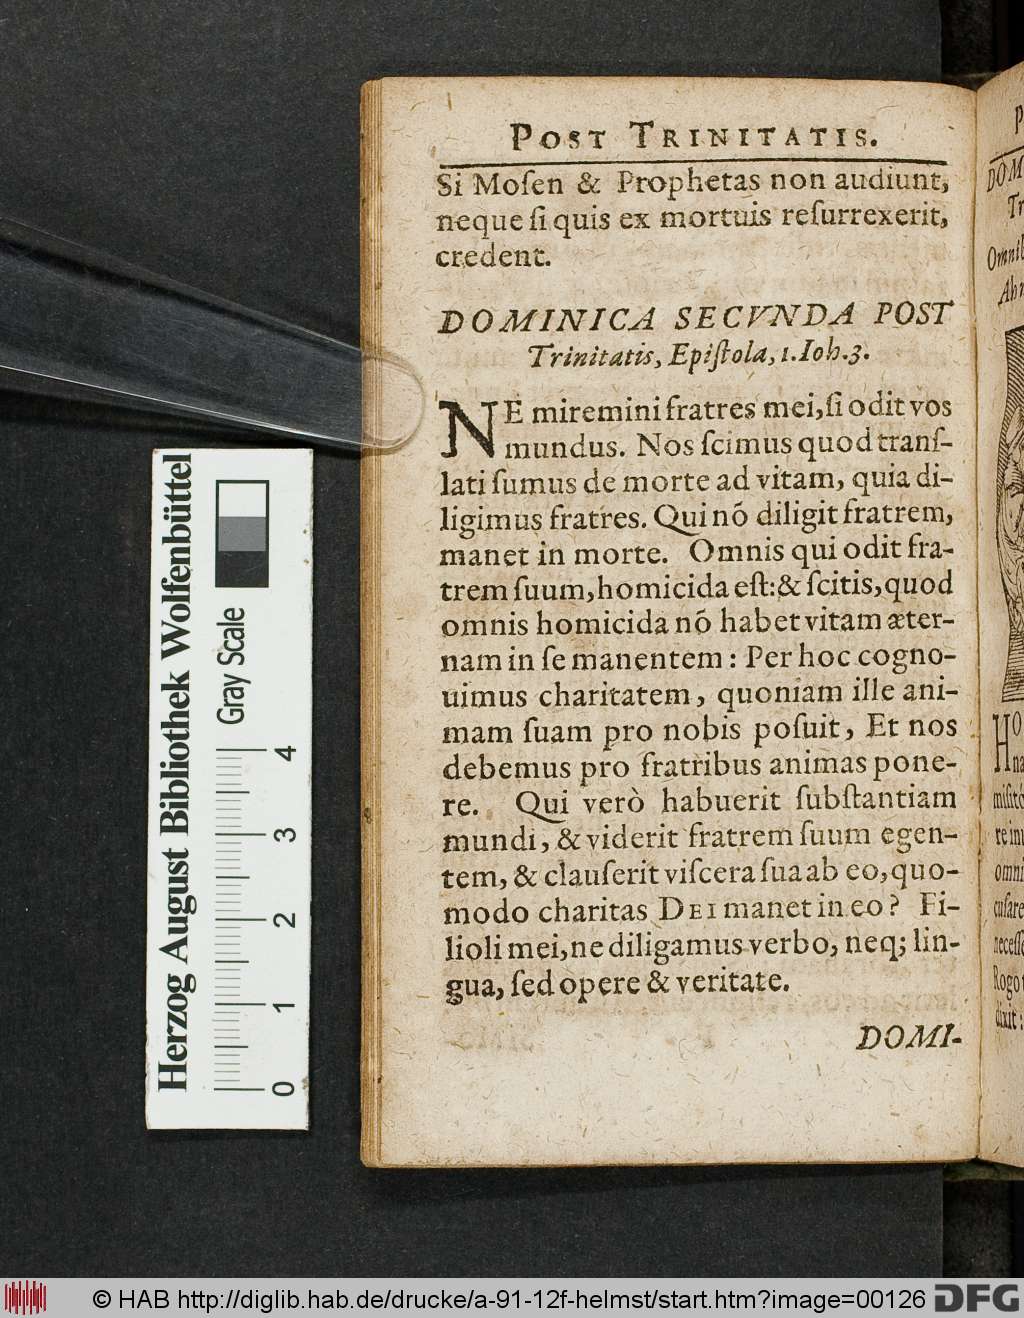 POST TRINITATIS.
Si Moſen & Prophetas non audiunt,
neque ſi quis ex mortuis reſurrexerit,
credent.
DOMINICA SECVNDA POST
Trinitatis, Epiſtola, 1. Ioh. 3.
NE miremini fratres mei, ſi odit vos
mundus. Nos ſcimus quod tranſ-
lati ſumus de morte ad vitam, quia di-
ligimus fratres. Qui nõ diligit fratrem,
manet in morte. Omnis qui odit fra-
trem ſuum, homicida eſt: & ſcitis, quod
omnis homicida nõ habet vitam æter-
nam in ſe manentem: Per hoc cogno-
uimus charitatem, quoniam ille ani-
mam ſuam pro nobis poſuit, Et nos
debemus pro fratribus animas pone-
re. Qui verò habuerit ſubſtantiam
mundi, & viderit fratrem ſuum egen-
tem, & clauſerit viſcera ſua ab eo, quo-
modo charitas DEI manet in eo? Fi-
lioli mei, ne diligamus verbo, neq; lin-
gua, ſed opere & veritate.
DOMI-
Herzog August Bibliothek Wolfenbüttel
Gray Scale
0 1 2 3 4
P
DOM
Tr
Omnib
Abr
HO
na
miſit
re in
omni
cuſare
neceſſ
Rogo t
dixit:
© HAB http://diglib.hab.de/drucke/a-91-12f-helmst/start.htm?image=00126
DFG